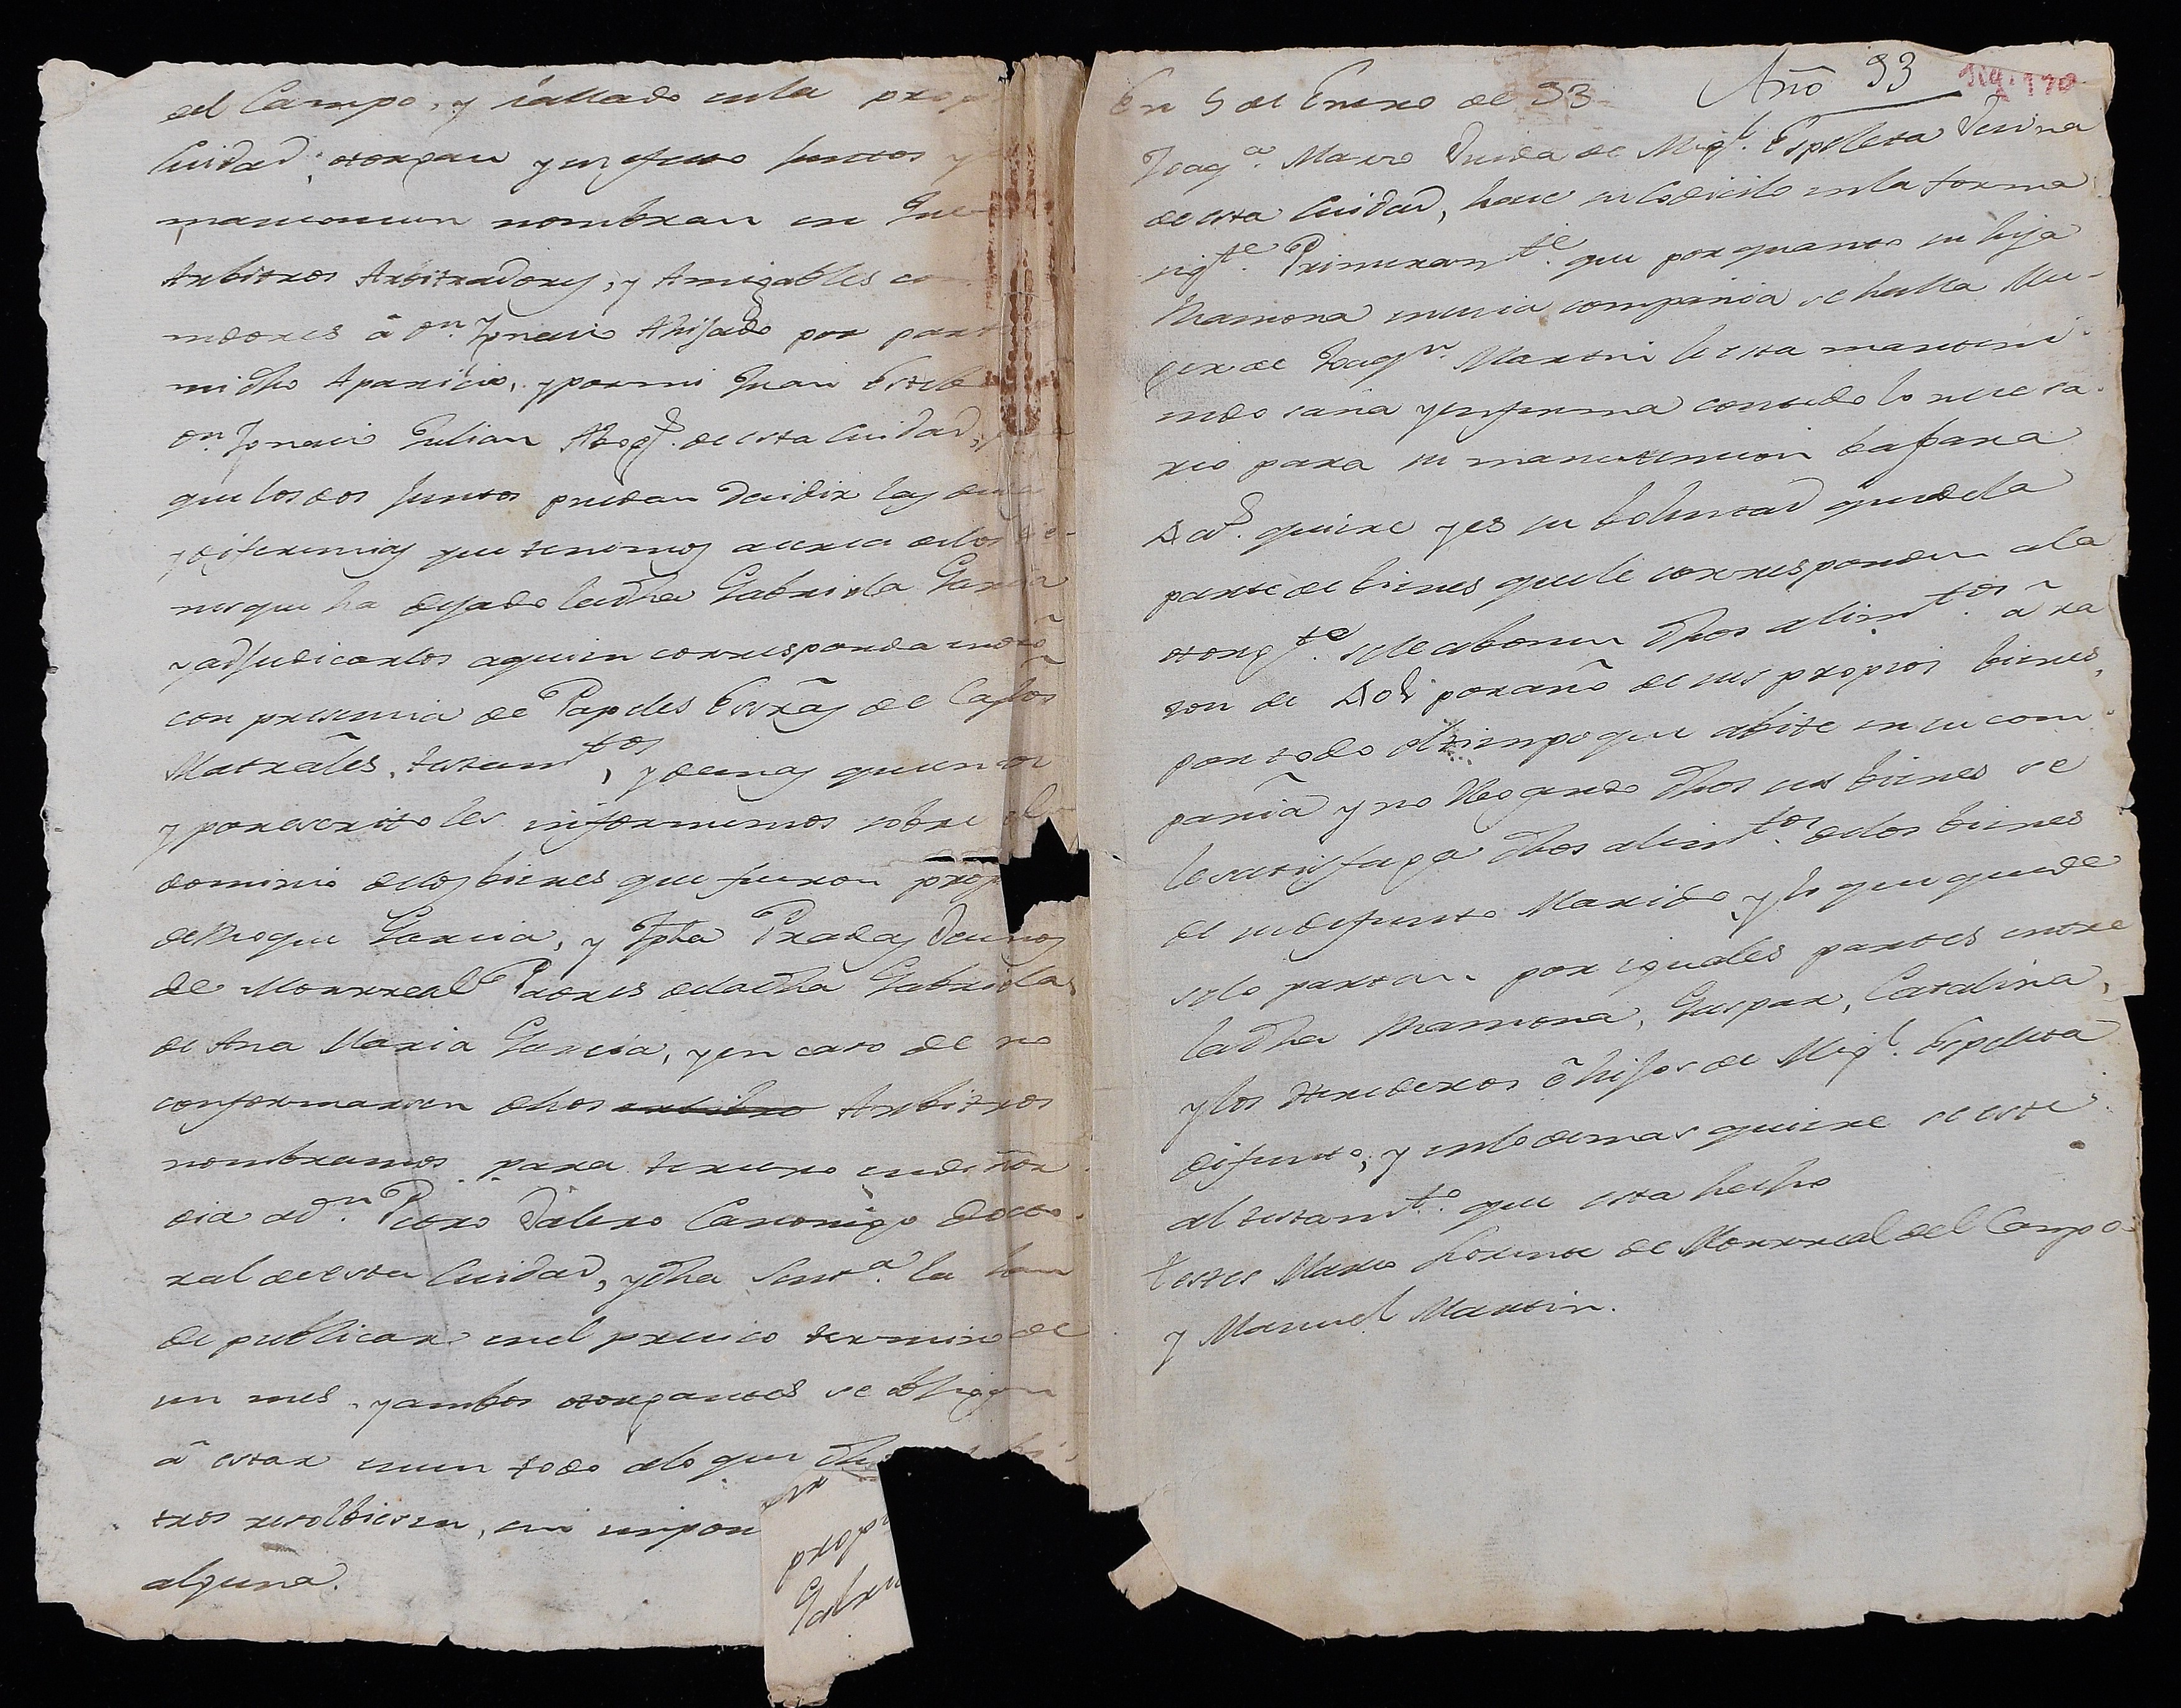 del Campo, y allado en la prop
Ciudad, otorgan y en efecto juntos y
mancomun nombran en Jue
Arbitros Arbitradores, y Amigables co
nedores â Dn. Ygnacio Ahijado por part
mi dho Aparicio, y por mi Juan Esteb
Dn. Ygnacio Julian Abogd. de esta Ciudad,
que los dos juntos puedan decidir las du
y diferencias que tenemos acerca de los
nes que ha dejado la dha Gabriela Garcia
y adjudicarlos a quien corresponda
con presencia de Papeles Escras de Capitos
Matrales, testamtos, y demas que
y por escrito les informemos sobre el
dominio de los bienes que fueron prop
de Roque Garcia, y Jpha Pradas Vecinos
de Monrreal Padres de la dha Gabriela,
de Ana Maria Garcia, y en caso de no
conformarsen dhos arbitro Arbitros
nombramos para tercero en discor
dia a Dn. Pedro Valero Canonigo Docto
ral de esta Ciudad, y dha Senta. la han
de publicar en el preciso termino de
un mes, y ambos otorgantes se obligan
â estar en un todo a lo que dh
tros resolbiesen, en
alguna.
prop
Gabri
En 5 de Enero de 93
Año 93
170
Joaqa. Marco Viuda de Migl. Espelleta Vecina
de esta Ciudad, hace su Codicilo en la forma
sigte. Primeramte. que por quanto su hija
Ramona en cuia compania se halla Mu-
ger de Joaqn. Martin le esta manteni-
endo sana y enferma con todo lo nececa-
rio para su manutencion
quiere y es su boluntad que de la
parte de bienes que le corresponden a la
otorgte. se le abonen dhos alimtos. â ra
zon de 40 por año de sus propios bienes,
por todo el tiempo que abite en su com-
pañia y no llegando dhos sus bienes se
le satisfaga dhos alimtos. de los bienes
de su defunto Marido, y lo que quede
se lo partan por iguales partes entre
la dha Ramona, Gaspar, Catalina,
y los Herederos ê hijos de Migl. Espelleta
difunto, y en lo demas quiere se este
al testamto. que esta hecho
testes Marco Lorente de Monrreal del Campo
y Manuel Martin.